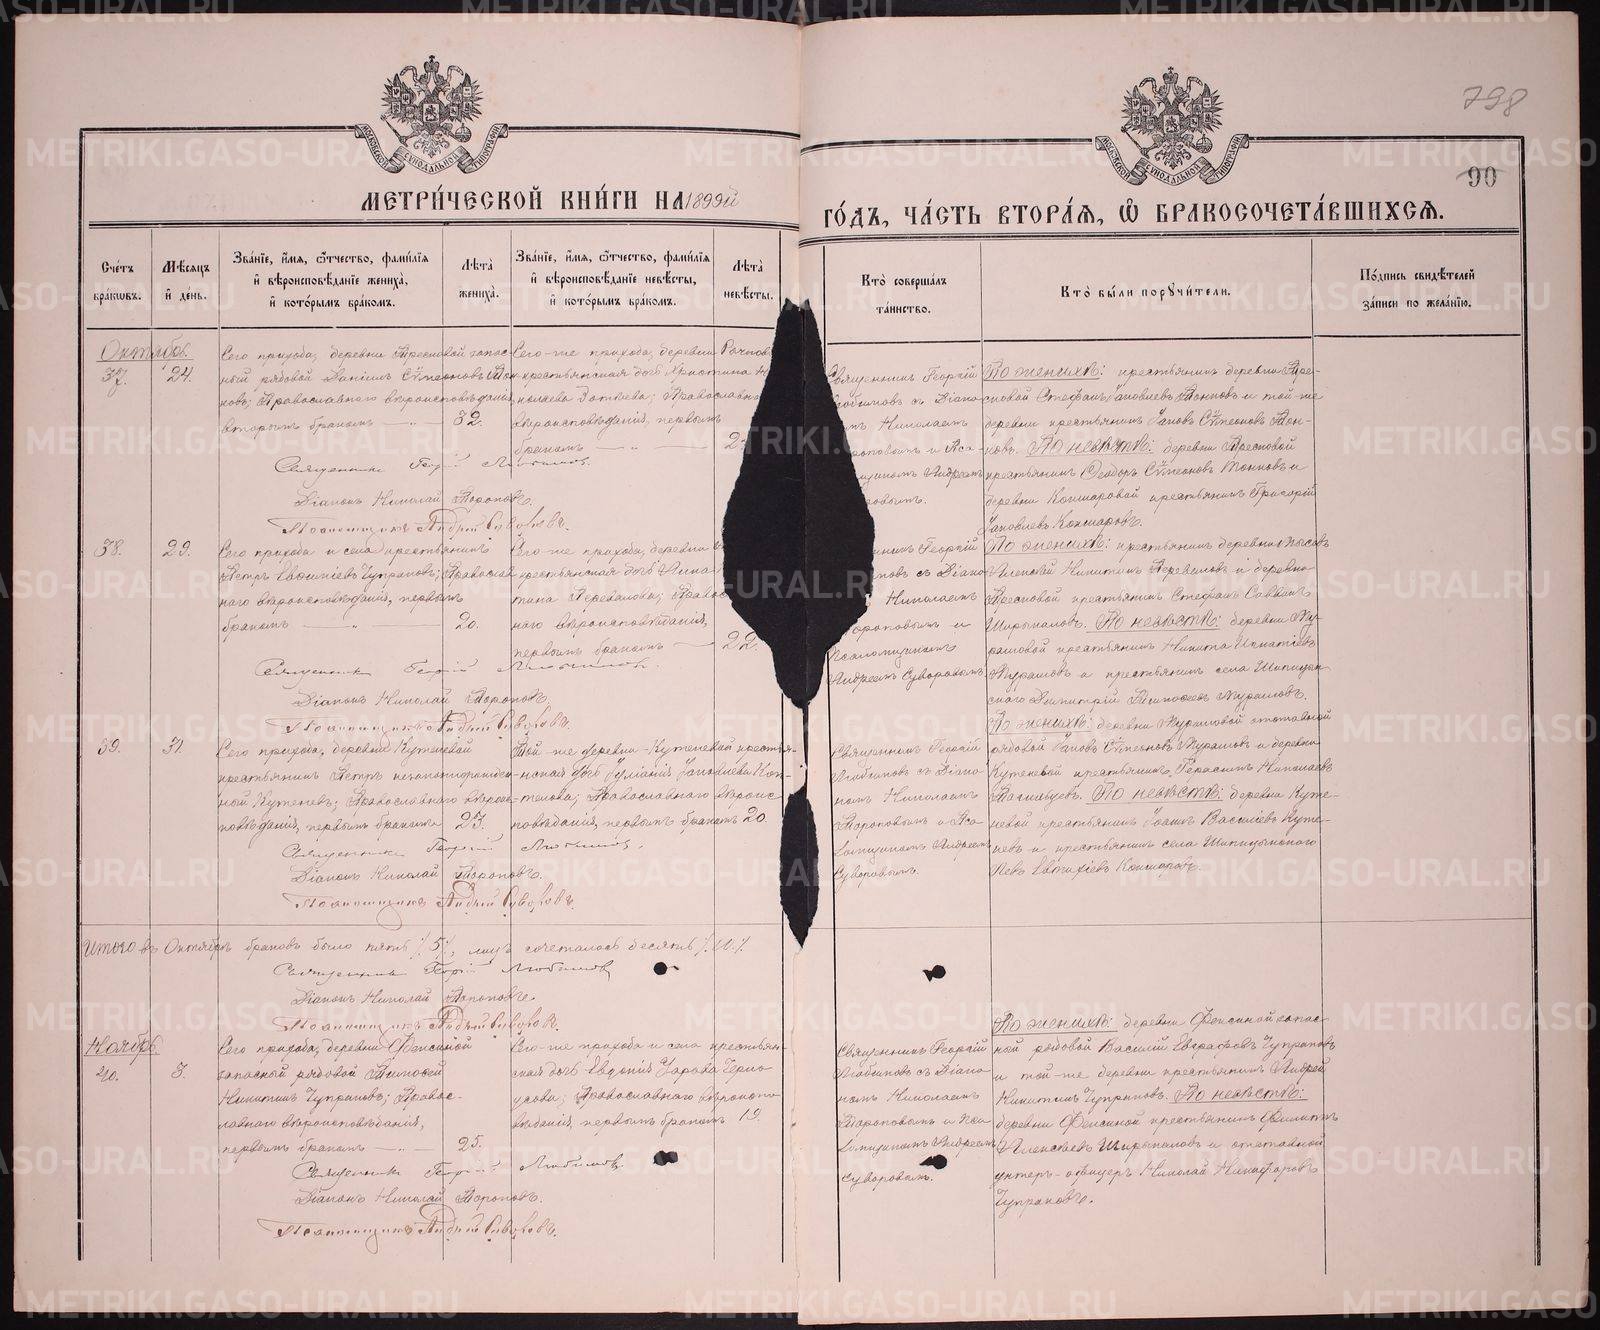 798
90
МЕТРИ́ЧЕСКОЙ КНИ́ГИ НА 1899й
ГО́ДЪ, ЧА́СТЬ ВТОРА́Я, Ѽ БРАКОСОЧЕТА́ВШИХСЯ.
Сче́тъ бра́кѡвъ.
Мѣ́сяцъ и҆ де́нь.
Зва́нїе, и҆́мя, ѻ҆́тчество, фами́лїя и҆ вѣроисповѣ́данїе жениха̀, и҆ кото́рымъ бра́комъ.
Лѣ́та жениха̀.
Зва́нїе, и҆́мя, ѻ҆́тчество, фами́лїя и҆ вѣроисповѣ́данїе невѣ́сты, и҆ кото́рымъ бра́комъ.
Лѣ́та невѣ́сты.
Кто̀ соверша́лъ та́инство.
Кто̀ бы́ли порꙋчи́тели.
По́дпись свидѣ́телей за́писи по жела́нїю.
Октябрь.
37.
24.
Сего прихода, деревни Пресновой запас-
ный рядовой Данiилъ Сѵмеоновъ
новъ; Православнаго вѣроисповѣданiя,
вторымъ бракомъ — „ —
32.
Сего-же прихода, деревни
крестьянская дочь Христина Н
колаева; Православна
вѣроисповѣданiя, первымъ
бракомъ — „ —
2
Священникъ Георгiй
Любимовъ съ Дiако
мъ Николаемъ
ороповымъ и Пса
мщикомъ Андреемъ
оровымъ.
По женихѣ: крестьянинъ деревни Пре-
сновой Стефанъ Iаковлевъ и той-же
деревни крестьянинъ Iаковъ Сѵмеоновъ
новъ. По невѣстѣ: деревни Пресновой
крестьянинъ Ѳеодоръ Сѵмеоновъ и
деревни Кошкаровой крестьянинъ Григорiй
Iаковлевъ Кошкаровъ.
Священникъ Георгiй Любимовъ.
Дiаконъ Николай Тороповъ.
Псаломщикъ Андрей Суворовъ.
38.
29.
Сего прихода и села крестьянинъ
Петръ Евѳимiевъ Чупраковъ; Православ
наго вѣроисповѣданiя, первымъ
бракомъ — „ —
20.
Сего-же прихода, деревни
крестьянская дочь Анна
тина Перевалова; Правос
наго вѣроисповѣданiя,
первымъ бракомъ —
22.
нникъ Георгiй
овъ съ Дiако
Николаемъ
ороповымъ и
Псаломщикомъ
Андреемъ Суворовымъ
По женихѣ: крестьянинъ деревни
Алексѣй Никитинъ Переваловъ и деревни
Пресновой крестьянинъ Стефанъ Саввинъ
Ширыкаловъ. По невѣстѣ: деревни Му-
рашовой крестьянинъ Никита Игнатiевъ
Мурашовъ и крестьянинъ села Шипицын-
скаго Димитрiй Тимоѳеевъ Мурашовъ.
Священникъ Георгiй Любимовъ.
Дiаконъ Николай Тороповъ.
Псаломщикъ Андрей Суворовъ.
39.
31.
Сего прихода, деревни Кутеневой
крестьянинъ Петръ незаконнорожден-
ный Кутеневъ; Православнаго вѣроис-
повѣданiя, первымъ бракомъ
23.
Той-же деревни Кутеневой крестья-
нская дочь Iулiанiя Iаковлева Коп-
телова; Православнаго вѣроис-
повѣданiя, первымъ бракомъ
20.
Священникъ Георгiй
Любимовъ съ Дiако-
номъ Николаемъ
Тороповымъ и Пса
ломщикомъ Андреемъ
Суворовымъ.
По женихѣ: деревни Мурашовой отставной
рядовой Iаковъ Сѵмеоновъ Мурашовъ и деревни
Кутеневой крестьянинъ Герасимъ Николаевъ
По невѣстѣ: деревни Куте-
невой крестьянинъ Iоаннъ Василiевъ Куте-
невъ и крестьянинъ села Шипицынскаго
Левъ Евтихiевъ Кошкаровъ.
Священникъ Георгiй Любимовъ.
Дiаконъ Николай Тороповъ.
Псаломщикъ Андрей Суворовъ.
Итого въ Октябрѣ браковъ было пять /5/, лицъ сочеталось десять /10/.
Священникъ Георгiй Любимовъ
Дiаконъ Николай Тороповъ.
Псаломщикъ Андрей Суворовъ.
Ноябрь.
40.
3.
Сего прихода, деревни Фоксиной
запасный рядовой Тимоѳей
Никитинъ Чупраковъ; Правос-
лавнаго вѣроисповѣданiя,
первымъ бракомъ — „ —
25.
Сего-же прихода и села крестьян-
ская дочь Евдокiя Карпова Черно
усова; Православнаго вѣроиспо
вѣданiя, первымъ бракомъ
19.
Священникъ Георгiй
Любимовъ съ Дiако
номъ Николаемъ
Тороповымъ и Пса
ломщикомъ Андреемъ
Суворовымъ.
По женихѣ: деревни Фоксиной запас-
ный рядовой Василiй Евграфовъ Чупраковъ
и той-же деревни крестьянинъ Андрей
Никитинъ Чупраковъ. По невѣстѣ:
деревни Фоксиной крестьянинъ Филиппъ
Алексѣевъ Ширыкаловъ и отставной
унтеръ-офицеръ Николай Никифоровъ
Чупраковъ.
Священникъ Георгiй Любимовъ
Дiаконъ Николай Тороповъ.
Псаломщикъ Андрей Суворовъ.
METRIKI.GASO-URAL.RU